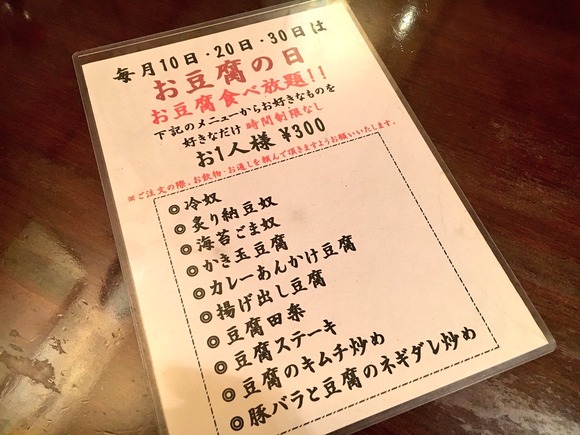 毎月10日・20日・30日は
お豆腐の日
お豆腐食べ放題!!
下記のメニューからお好きなものを
好きなだけ 時間制限なし
お1人様 ¥300
※ご注文の際、お飲物・お通しを頼んで頂きますようお願いいたします。
◎冷奴
◎炙り納豆奴
◎海苔ごま奴
◎かき玉豆腐
◎カレーあんかけ豆腐
◎揚げ出し豆腐
◎豆腐田楽
◎豆腐ステーキ
◎豆腐のキムチ炒め
◎豚バラと豆腐のネギダレ炒め